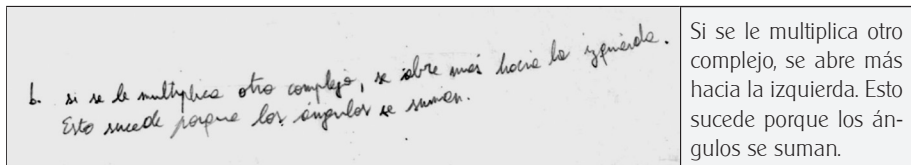 b. si se le multiplica otro complejo, se abre más hacia la izquierda.
Esto sucede porque los ángulos se suman.
Si se le multiplica otro
complejo, se abre más
hacia la izquierda. Esto
sucede porque los án-
gulos se suman.